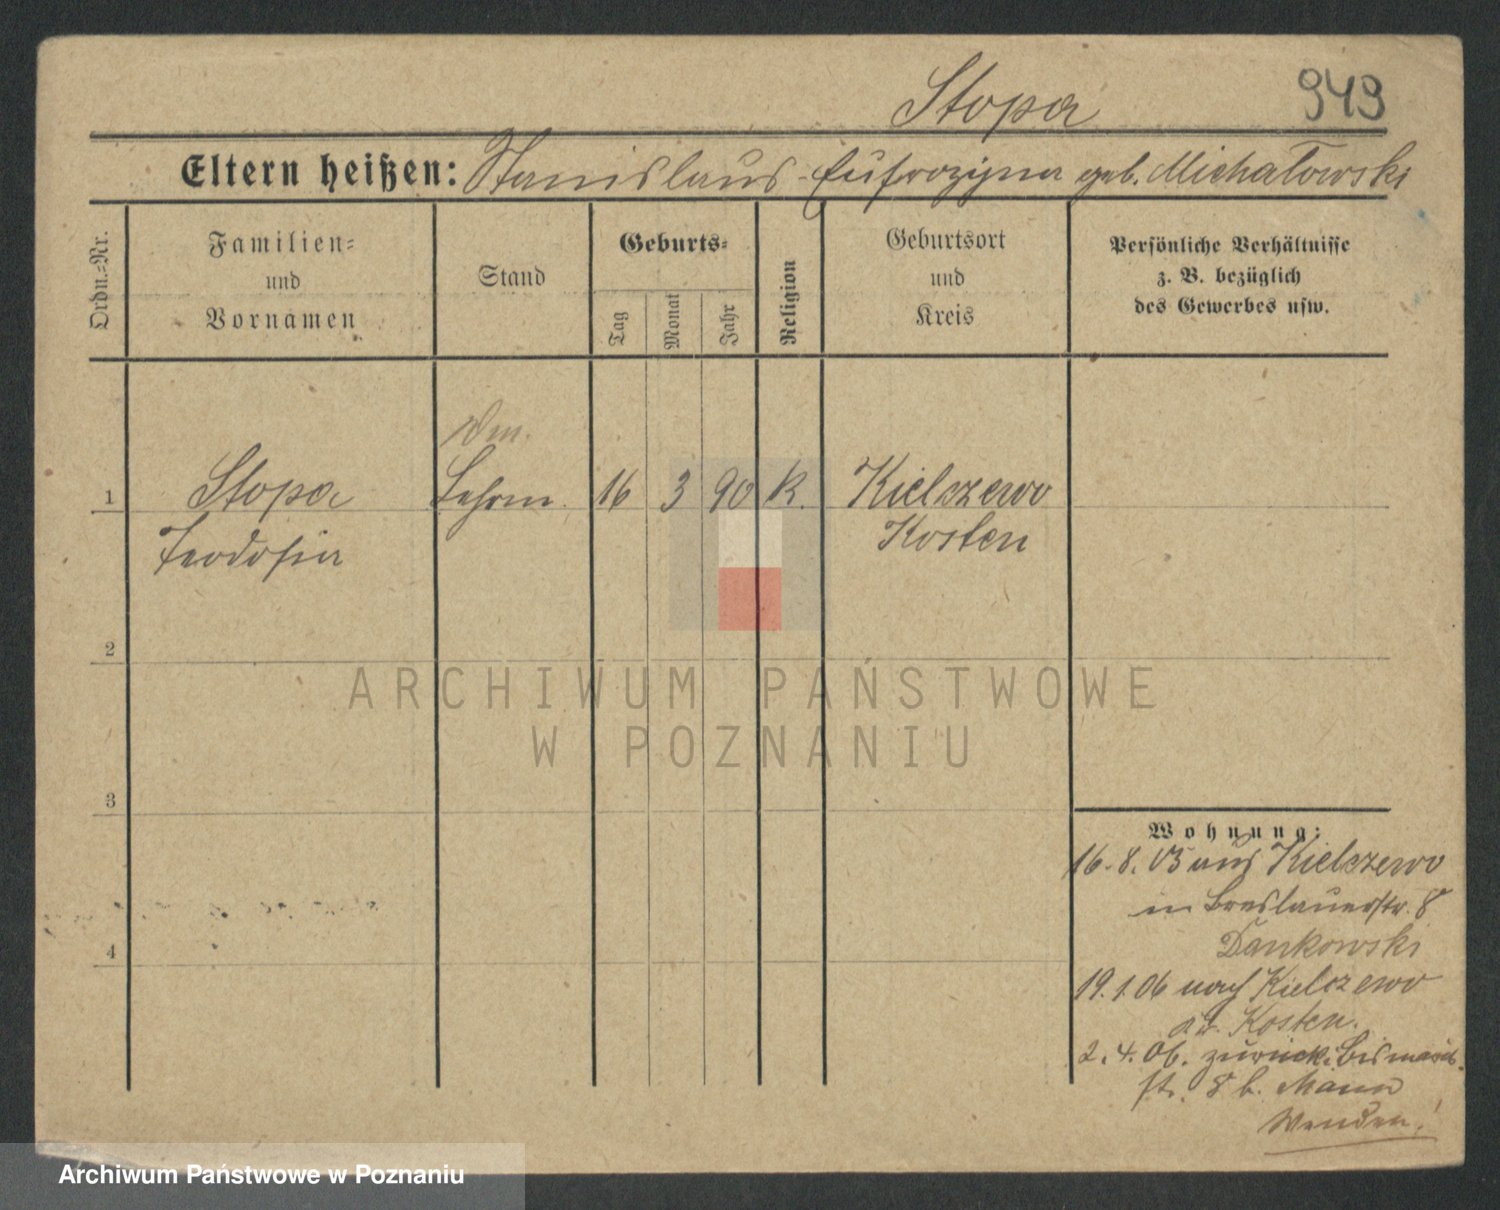 Stopa 949
Eltern heißen: Stanislaus - Eufrozyna geb. Michałowski
Ordn.-Nr.
Familien-
und
Vornamen
Stand
Geburts-
Tag
Monat
Jahr
Religion
Geburtsort
und
Kreis
Persönliche Verhältnisse
z. B. bezüglich
des Gewerbes usw.
1 Stopa Lehrm. 16 3 90 K. Kielczewo
Teodosia Kosten
2
3
4
Wohnung:
16.8.05 aus Kielczewo
in Breslauerstr. 8
Dankowski
19.1.06 nach Kielczewo
Kosten.
2.4.06. zurück. Bismarck
st. 8 b. Mann
Wenden!
ARCHIWUM PAŃSTWOWE
W POZNANIU
Archiwum Państwowe w Poznaniu